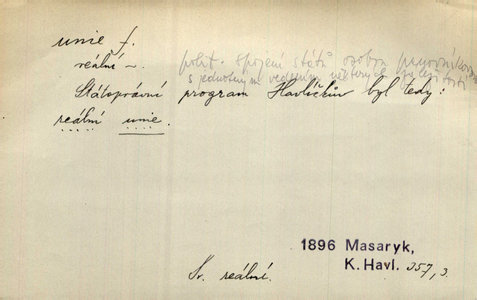 unie f.
reální ~. polit. spojení států osobou panovníkovou
s jednotným vedením některých záležitostí
Státoprávní program Havlíčkův byl tedy:
reální unie.
1896 Masaryk,
K. Havl. 357, 3.
Sv. reální.